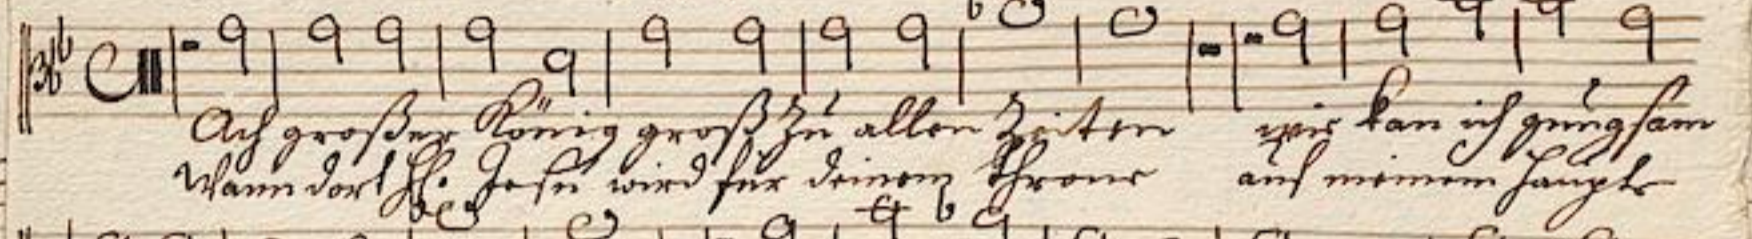 Ach großer König groß zu allen Zeiten wie kan ich gnugsam
Wann dort H. Jesu wird für deinem Throne auf meinem Haupte